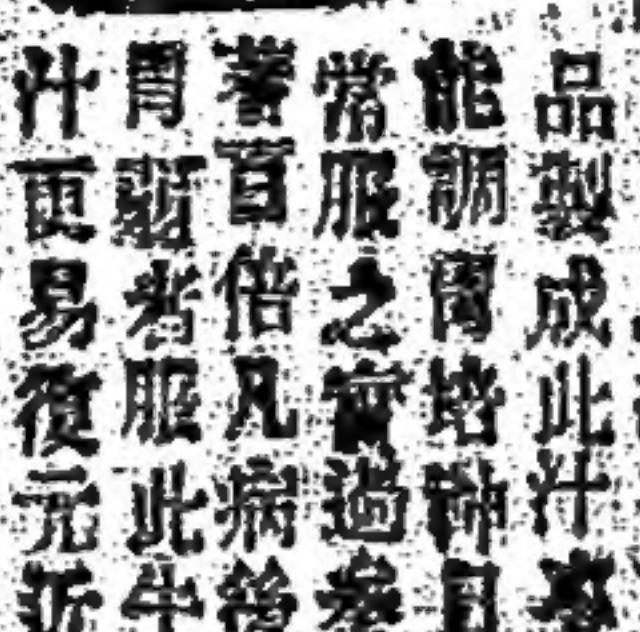 品製成此汁
能調胃培脾
常服之實過參
著百倍凡病後
胃弱者服此牛
汁更易復元